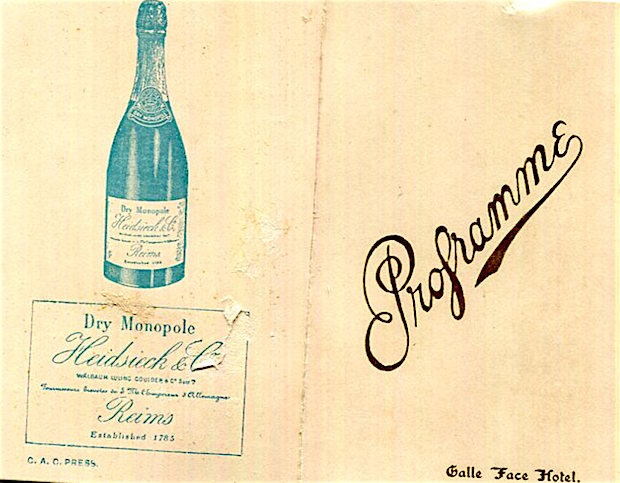 DRY MONOPOLE
Dry Monopole
Heidsieck & Co
Reims
Established 1785
Dry Monopole
Heidsieck & Co
WALBAUM LULING GOULDEN & Co Succrs
Fournisseurs brevetés de S. M. l'Empereur d'Allemagne
Reims
Established 1785
C. A. C. PRESS.
Programme
Galle Face Hotel.